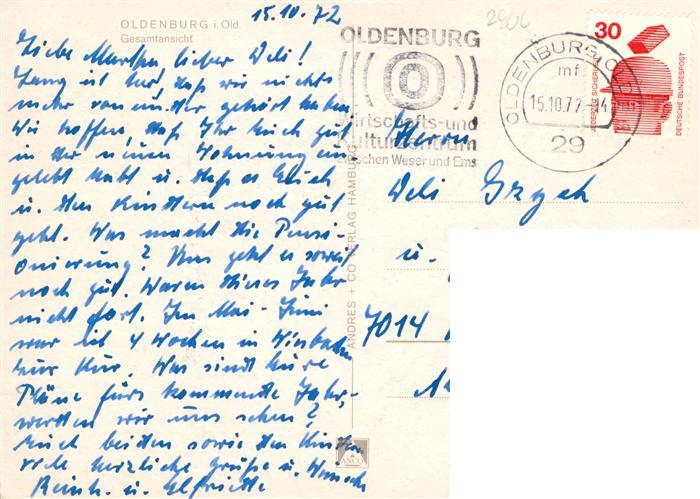 15.10.72
OLDENBURG i. Old.
Gesamtansicht
Liebe Martha, lieber Veli!
Lang ist her, daß wir nichts
mehr voneinander gehört haben.
Wir hoffen, daß Ihr Euch gut
in der neuen Wohnung ein
gelebt habt u. daß es Euch
u. den Kindern noch gut
geht. Was macht die Pensi-
onierung? Uns geht es soweit
noch gut. Waren dieses Jahr
nicht fort. Im Mai - Juni
war 4 Wochen in Wiesbaden
zur Kur. Was sind Eure
Pläne fürs kommende Jahr,
werden wir uns sehen?
Euch beiden sowie den Kindern
viele herzliche Grüße u. Wünsche
Reinh. u. Elfriede
ANDRES + CO VERLAG HAMBURG
ANCO
OLDENBURG
Wirtschafts-und
Kulturzentrum
zwischen Weser und Ems
OLDENBURG (OLDB)
mf
15.10.72
29
30
JEDERZEIT SICHERHEIT
DEUTSCHE BUNDESPOST
Herrn
Veli
u.
7014